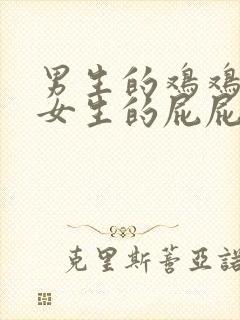 男生的鸡鸡
女生的屁屁
克里斯蒂亚诺